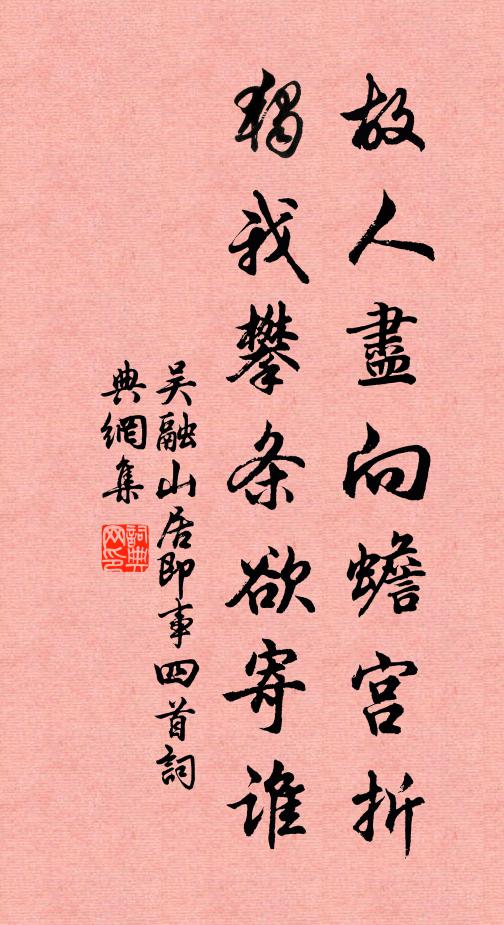 故人盡向蟾宮折
獨我攀条欲寄誰
吴融山居即事四首詞
典網集
詞典网印